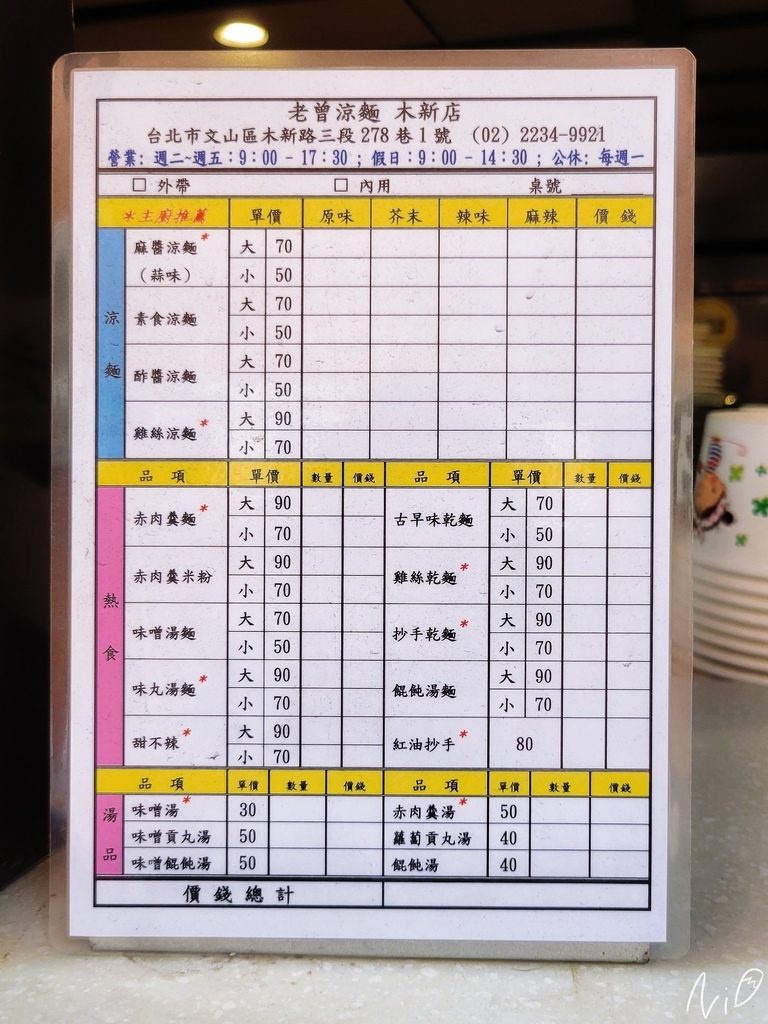 老曾涼麵 木新店
台北市文山區木新路三段 278 巷 1 號 (02) 2234-9921
營業: 週二~週五:9:00 - 17:30 ; 假日:9:00 - 14:30 ; 公休: 每週一
□ 外帶 □ 內用 桌號
*主廚推薦 單價 原味 芥末 辣味 麻辣 價錢
涼麵
麻醬涼麵* 大 70
(蒜味) 小 50
素食涼麵 大 70
小 50
酢醬涼麵 大 70
小 50
雞絲涼麵* 大 90
小 70
品項 單價 數量 價錢 品項 單價 數量 價錢
熱食
赤肉羹麵* 大 90 古早味乾麵 大 70
小 70 小 50
赤肉羹米粉 大 90 雞絲乾麵* 大 90
小 70 小 70
味噌湯麵 大 70 抄手乾麵* 大 90
小 50 小 70
味丸湯麵* 大 90 餛飩湯麵 大 90
小 70 小 70
甜不辣* 大 90 紅油抄手* 80
小 70
品項 單價 數量 價錢 品項 單價 數量 價錢
湯品
味噌湯* 30 赤肉羹湯* 50
味噌貢丸湯 50 蘿蔔貢丸湯 40
味噌餛飩湯 50 餛飩湯 40
價錢總計